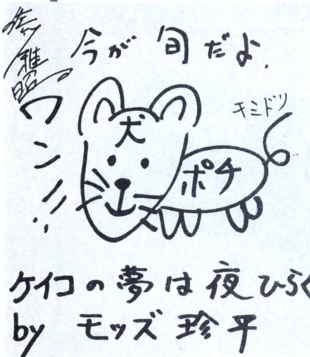 今が旬だよ.
ワン!!
犬
キミドリ
ポチ
ケイコの夢は夜ひらく
by モッズ 珍平